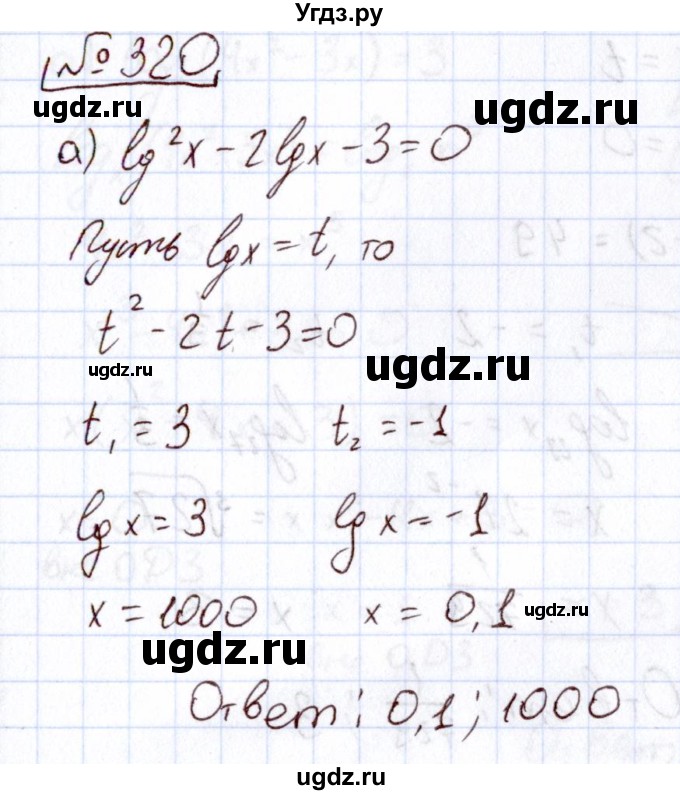 Угдз.ру
№ 320.
ugdz.ru ugdz.ru
а) lg²x - 2lgx - 3 = 0
Пусть lgx = t, то
t² - 2t - 3 = 0
ugdz.ru ugdz.ru
t₁ = 3 t₂ = -1
lgx = 3 lgx = -1
x = 1000 x = 0,1 ugdz.ru
ugdz.ru
Ответ: 0,1; 1000
ugdz.ru